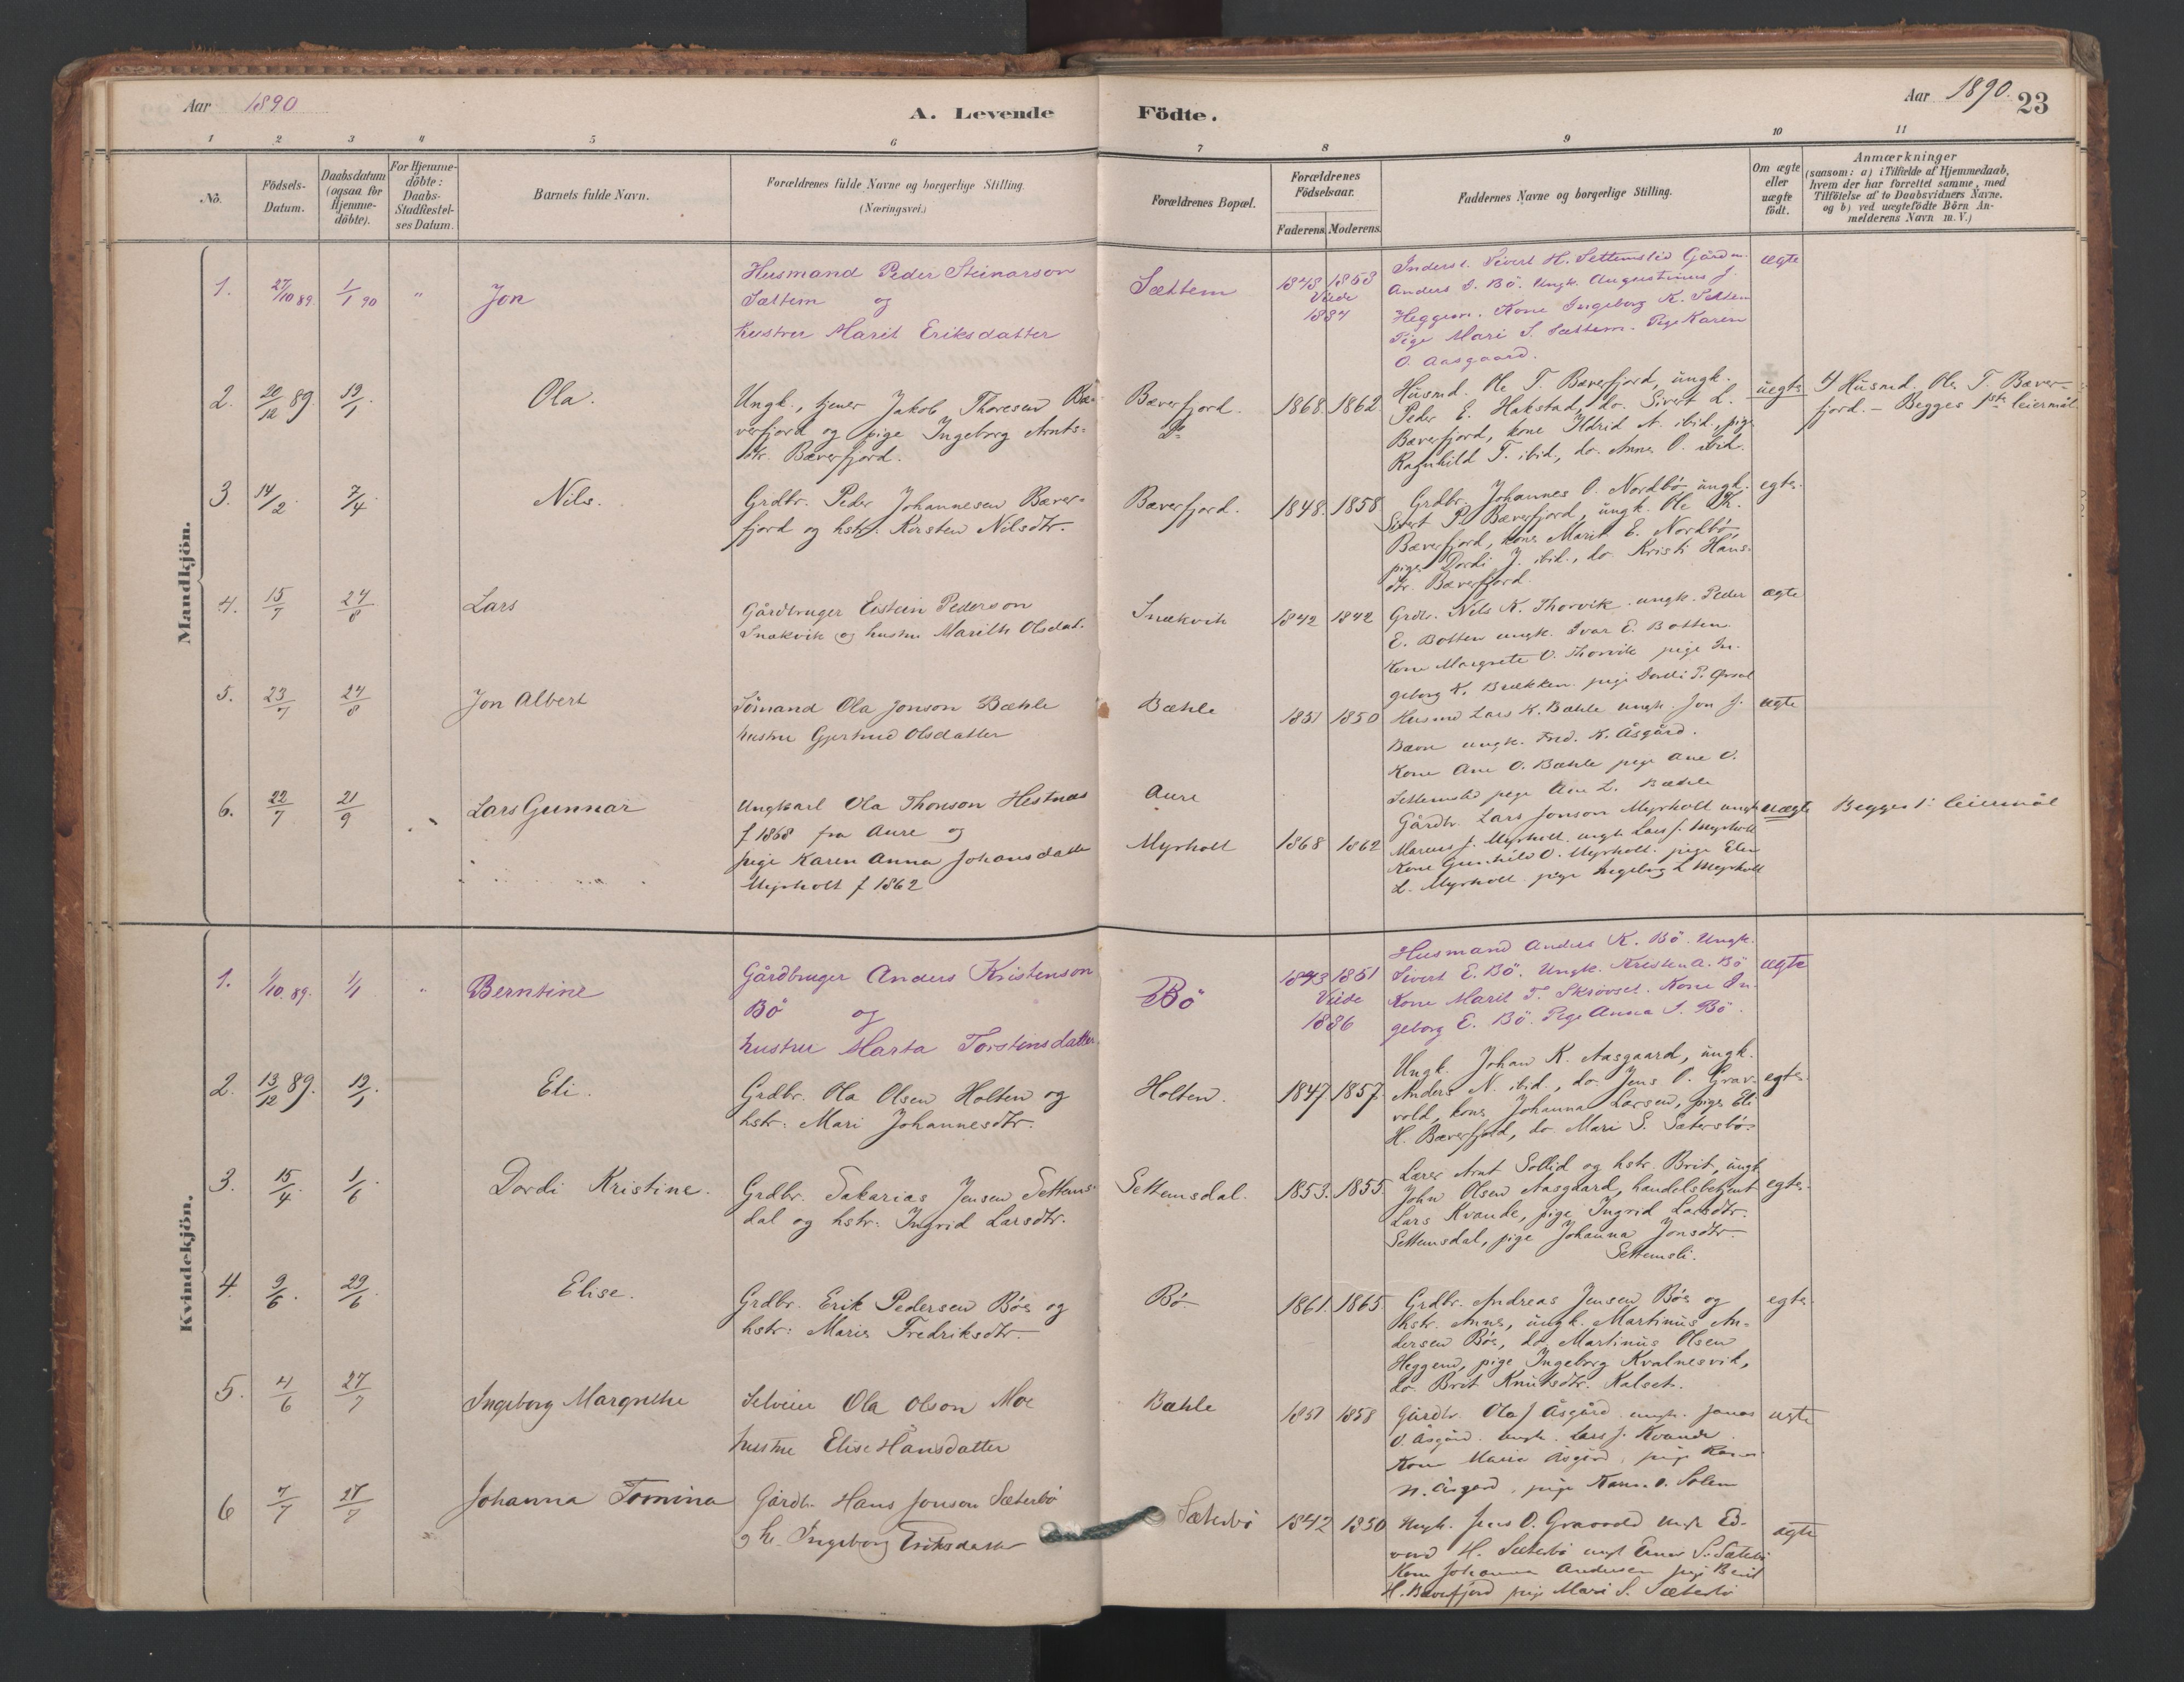 Aar 1890
A. Levende Födte.
Aar 1890. 23
1 2 3 4 5 6 7 8 9 10 11
No.
Födsels-Datum.
Daabsdatum (ogsaa for Hjemme-döbte).
For Hjemme-döbte: Daabs-Stadfæstel-ses Datum.
Barnets fulde Navn.
Forældrenes fulde Navne og borgerlige Stilling. (Næringsvei.)
Forældrenes Bopæl.
Forældrenes Födselsaar.
Faderens. Moderens.
Faddernes Navne og borgerlige Stilling.
Om ægte eller uægte födt.
Anmærkninger
(saasom: a) i Tilfælde af Hjemmedaab, hvem der har forrettet samme, med Tilföielse af to Daabsvidners Navne. og b) ved uægtefödte Börn An-melderens Navn m. V.)
Mandkjön.
1. 27/10 89 1/1 90 " Jon
Husmand Peder Steinarson
Sættem og
hustru Marit Eriksdatter
Sættem
1848 1853
Viede
1887
Inders t. Sivert H. Settemslid Gårdm.
Anders S. Bö. Ungk. Augustinus J.
Heggem. Kone Ingeborg K. Settem
Pige Mari S. Sættem. Pige Karen
O. Aasgaard.
ægte
2. 20/12 89. 19/1. Ola.
Ungk., tjener Jakob Thoresen Bæ-
verfjord og pige Ingeborg Arnts-
dtr. Bæverfjord.
Bæverfjord.
Do
1868. 1862
Husmd. Ole T. Bæverfjord, ungk.
Peder E. Hakstad, do. Sivert L.
Bæverfjord, kone Ildrid A. ibid., pige
Ragnhild T. ibid., do. Anne O. ibid.
uegte
Husmd. Ole T. Bæver-
fjord. – Begges 1ste leiermål.
3. 14/2. 7/4. Nils.
Grdbr. Peder Johannesen Bæver-
fjord og hstr. Kersten Nilsdtr.
Bæverfjord.
1848. 1858
Grdbr. Johannes O. Nordbö ungk.
Sivert P. Bæverfjord, ungk. Ole K.
Bæverfjord, kone Marit E. Nordbö
pige Dordi J. ibid., do. Kristi Hans-
dtr. Bæverfjord.
egte.
4. 15/7 24/8 Lars
Gårdbruger Eistein Pederson
Snækvik og hustru Marith Olsdat.
Snækvik
1842 1842
Grdb. Nils K. Thorvik. ungk. Peder
E. Botten ungk. Ivar E. Botten
Kone Margrete O. Thorvik pige In-
geborg K. Brækken. pige Dordi P.
ægte
5. 23/7 24/8 Jon Albert
Sömand Ola Jonson Bæhle
hustru Gjertrud Olsdatter
Bæhle
1851 1850
Husmd Lars K. Bæhle ungk. Jon J.
Bævre ungk. Fred. K. Åsgård.
Kone Ane O. Bæhle pige Ane O.
Settemslid pige Ane L. Bæhle
ægte
6. 22/7 21/9 Lars Gunnar
Ungkarl Ola Thorson Hestnæs
f 1868 fra Aure og
pige Karen Anna Johansdatter
Myrholt f 1862
Aure
Myrholt
1868 1862
Gårdbr. Lars Jonson Myrholt ungk
Marius J. Myrholt. ungk Lars J. Myrholt
Kone Gunhild O. Myrholt. pige Elen
L. Myrholt. pige Ingeborg L Myrholt
uægte
Begges 1. leiermål
Kvindekjön.
1. 1/10 89. 1/1 " Berntine
Gårdbruger Anders Kristenson
Bö og
hustru Marta Torstensdatter
Bö
1843 1851
Viede
1886
Husmand Anders K. Bö. Ungk.
Sivert E. Bö. Ungk. Kristen A. Bö
Kone Marit T. Skrövset. Kone In-
geborg E. Bö. Pige Anna S. Bö.
ægte
2. 13/12 89. 19/1. Eli.
Grdbr. Ola Olsen Holten og
hstr: Mari Johannesdtr.
Holten.
1847 1857.
Ungk. Johan K. Aasgaard, ungk.
Anders N. ibid., do. Jens O. Grav-
vold, kone Johanna Larsen, pige Eli
H. Bæverfjord, do. Mari S. Sætersbö.
egte.
3. 15/4. 1/6. Dordi Kristine.
Grdbr. Sakarias Jensen Settems-
dal og hstr: Ingrid Larsdtr.
Settemsdal.
1853. 1855.
Lærer Arnt Sollid og hstr. Brit, ungk
John Olsen Aasgaard, handelsbetjent
Lars Kvande, pige Ingrid Larsdtr.
Settemsdal, pige Johanna Jonsdtr.
Settemsli.
egte.
4. 9/6. 29/6. Elise.
Grdbr. Erik Pedersen Böe og
hstr: Marie Fredriksdtr.
Bö.
1861. 1865.
Grdbr. Andreas Jensen Böe og
hstr. Anne, ungk. Martinus An-
dersen Böe, do. Martinus Olsen
Heggem, pige Ingeborg Kvalnesvik,
do. Brit Knutsdtr. Kalset.
egte.
5. 4/6 27/7 Ingeborg Margrethe
Selveier Ola Olson Moe
hustru Elise Hansdatter
Bæhle
1851 1858
Gårdbr. Ola J Åsgård. ungk. Jonas
O. Åsgård. ungk. Lars J. Kvande.
Kone Marie Åsgård, pige
N. Åsgård, pige O. Solem
ægte
6 7/7 27/7 Johanna Tomina
Gårdbr Hans Jonson Sæterbö
og h. Ingeborg Eriksdatter
Sæterbö
1842 1850
Ungk. Jens O. Gravvold Ungk Ed-
vard H. Sæterbö ungk Einar S. Sæterbö
Kone Johanna Andersen pige Berit
H. Bæverfjord pige Mari S. Sæterbö
ægte